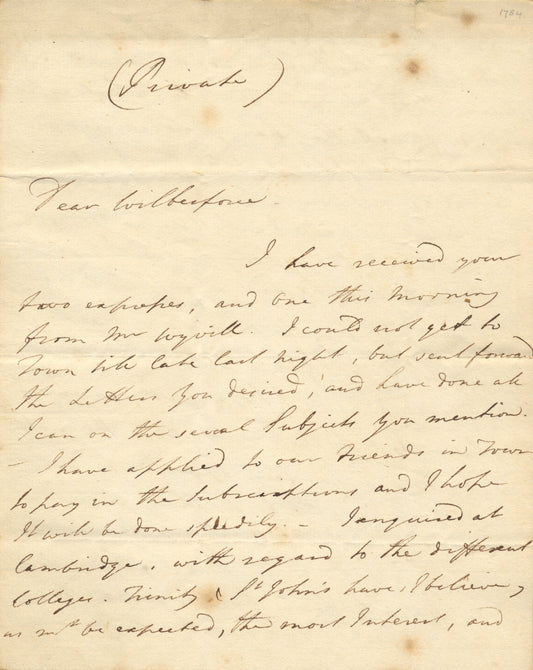 1784
(Private)
Dear Wilberforce -
I have received your
two expresses, and one this Morning
from Mr Wyvill. I could not get to
Town till late last night, but sent forward
the Letters you desired, and have done all
I can on the several Subjects you mention.
- I have applied to our Friends in Town
to pay in the Subscriptions and I hope
It will be done speedily. - I enquired at
Cambridge, with regard to the different
Colleges. Trinity & St John's have, I believe,
as mt be expected, the most Interest, and